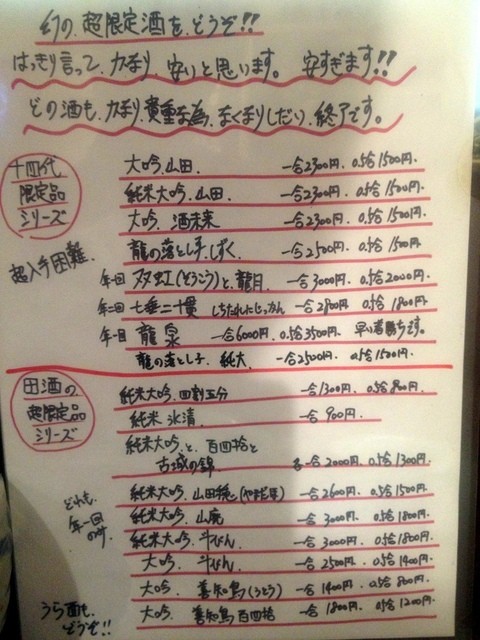 幻の、超限定酒を、どうぞ!!
はっきり言って、かなり、安いと思います。安すぎます!!
どの酒も、かなり、貴重な為、なくなりしだい、終了です。
十四代
限定品
シリーズ
超入手困難
大吟、山田 一合2300円、0.5合1500円、
純米大吟、山田、一合2300円、0.5合1500円、
大吟、酒未来 一合2300円、0.5合1500円、
龍の落とし子、しずく、一合2500円、0.5合1500円
年一回 双虹(そうこう)と、龍月、一合3000円、0.5合2000円、
年二回 七垂二十貫 しちたれにじっかん 一合2800円、0.5合1800円、
年一回 龍泉 一合6000円、0.5合3500円 早い者勝ちです。
龍の落とし子、純大、一合2500円、0.5合1500円
田酒の、
超限定品
シリーズ
純米大吟、四割五分 一合1300円、0.5合800円、
純米、氷清、一合900円、
純米大吟、と、百四拾と
古城の錦 各一合2000円、0.5合1300円、
どれも、
年一回
のみ、
純米大吟、山田穂(やまだほ) 一合2600円、0.5合1500円
純米大吟、山廃 一合3000円、0.5合1800円、
純米大吟、斗びん、一合3000円、0.5合1800円
大吟、斗びん 一合2500円、0.5合1400円
大吟、善知鳥(うとう) 一合1400円、0.5合800円
大吟、善知鳥 百四拾 一合1800円、0.5合1200円
うら面も、
どうぞ!!